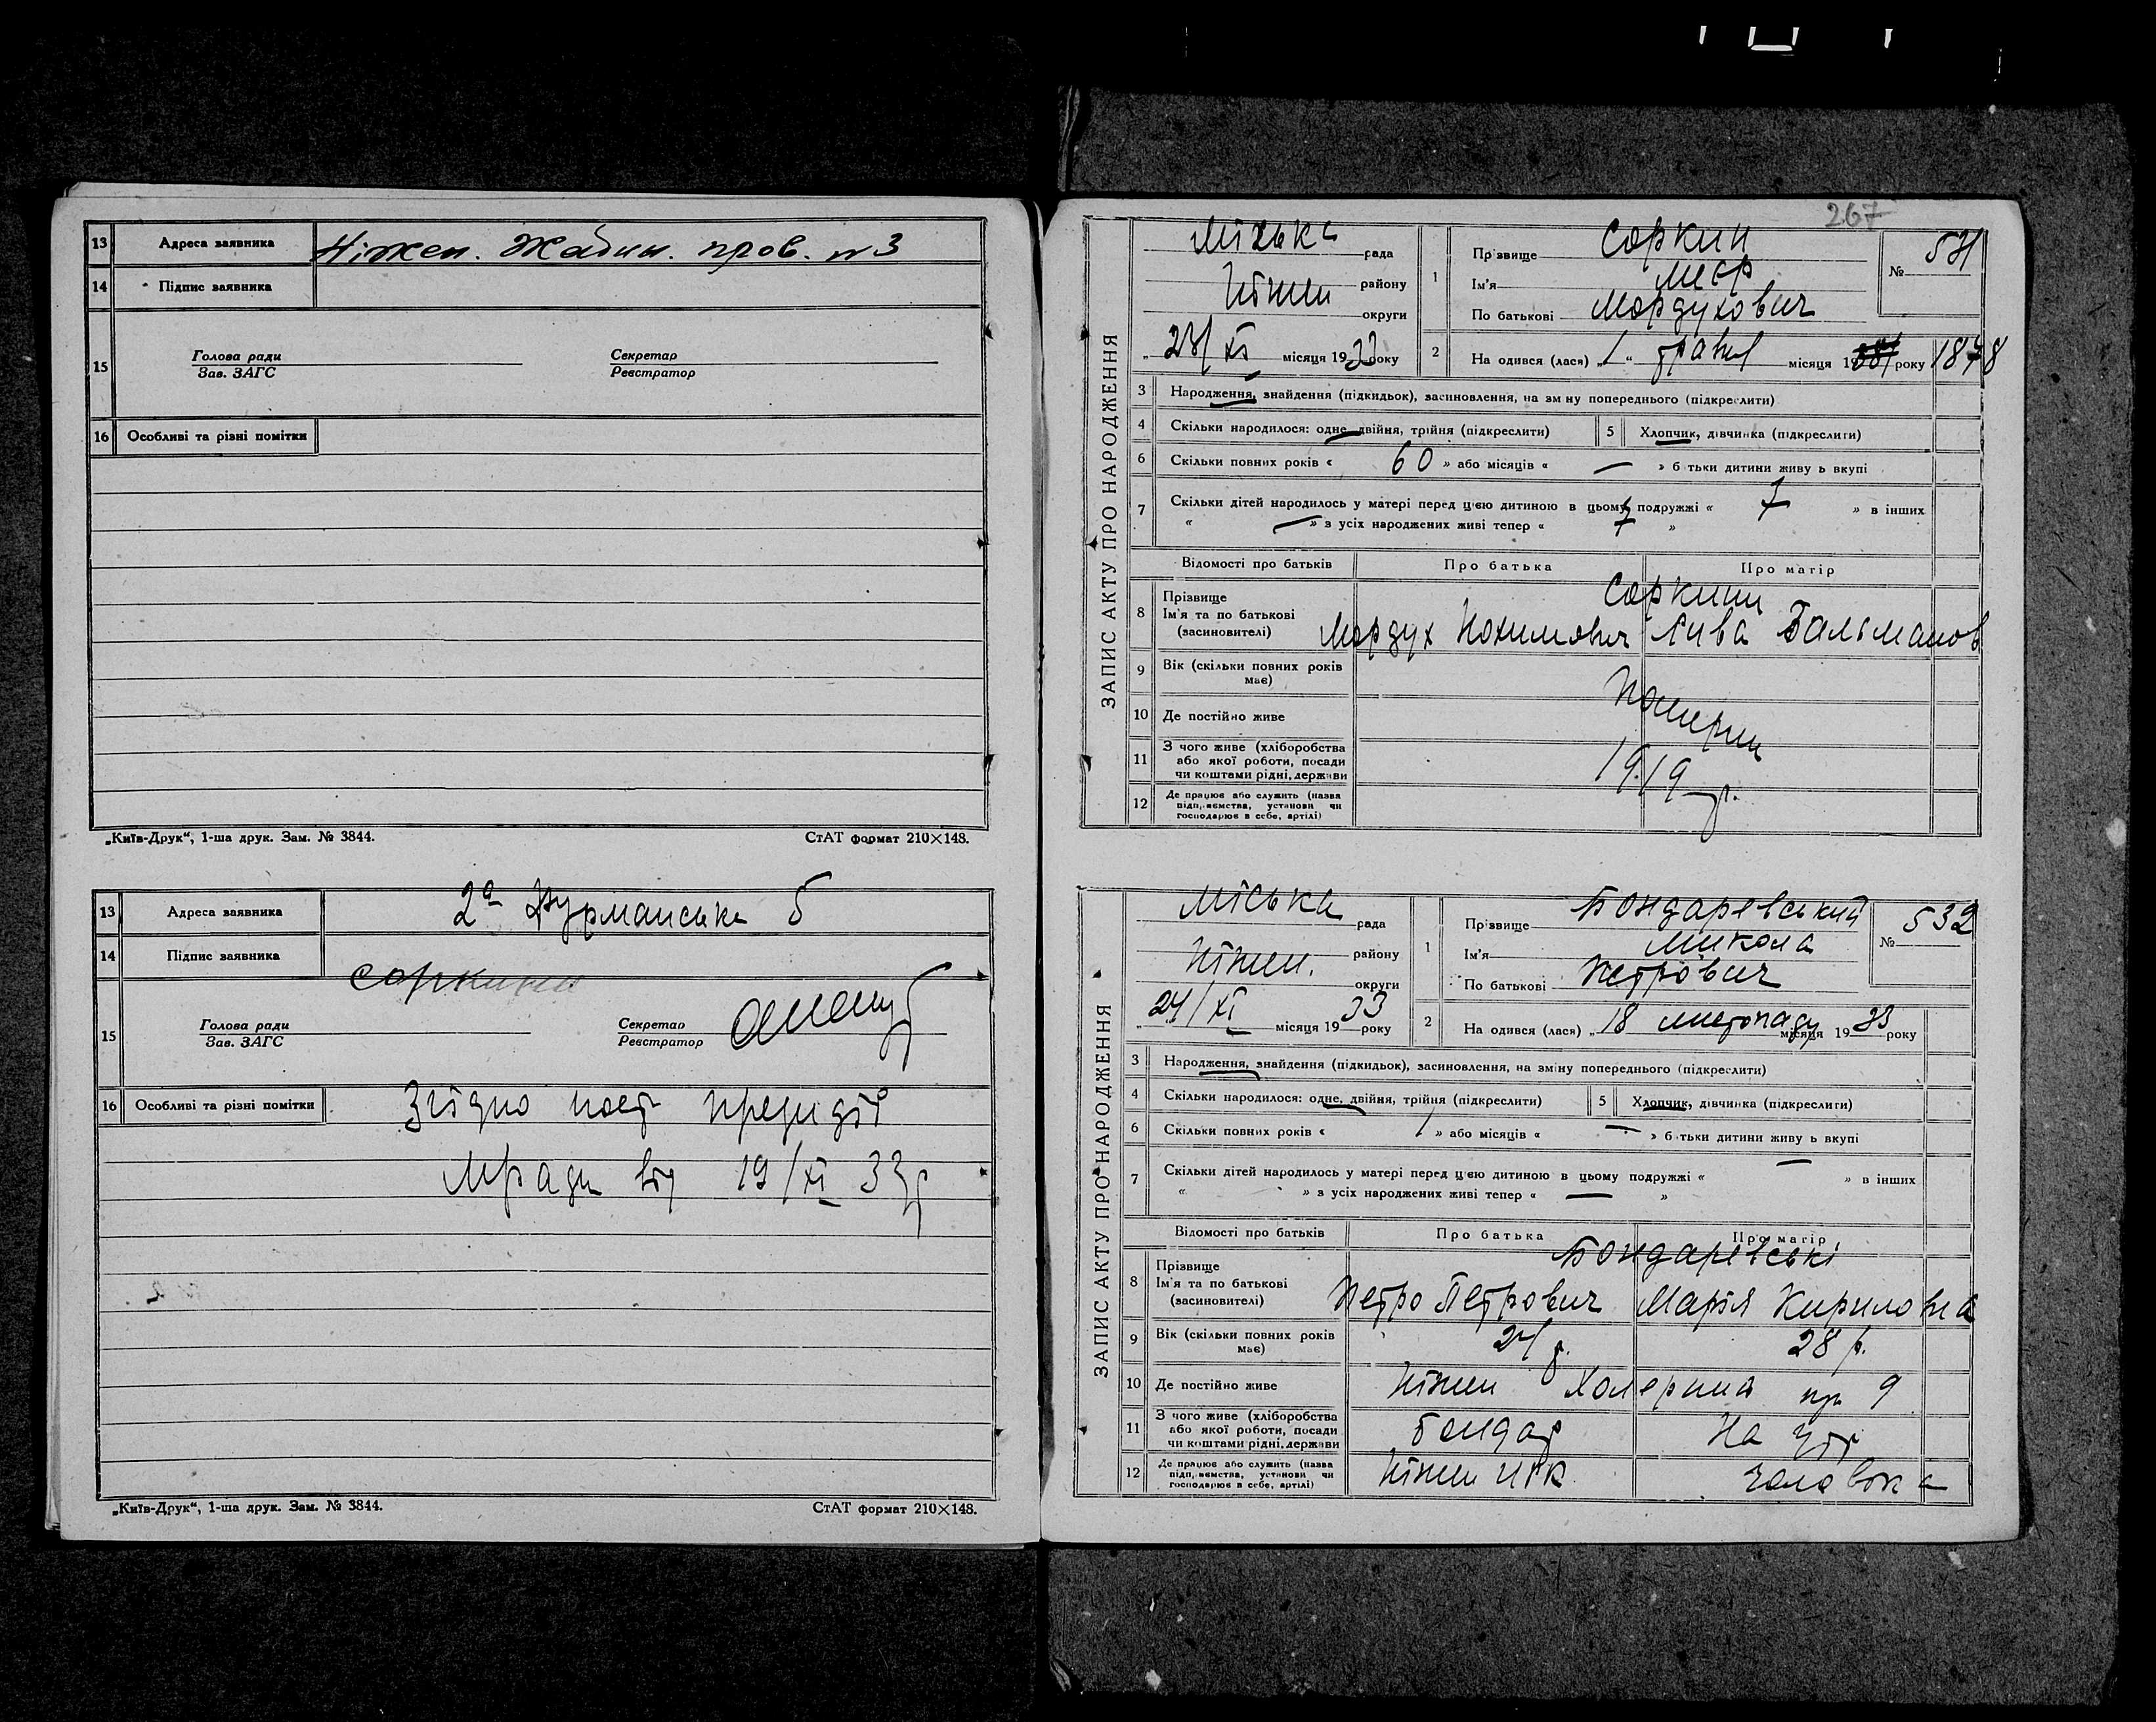 13 Адреса заявника Ніжен. Жабин. пров. № 3
14 Підпис заявника
15 Голова ради Секретар
Зав. ЗАГС Реєстратор
16 Особливі та різні помітки
„Київ-Друк“, 1-ша друк. Зам. № 3844. СтАТ формат 210×148.
13 Адреса заявника 2а 5
14 Підпис заявника Соркини
15 Голова ради Секретар
Зав. ЗАГС Реєстратор
16 Особливі та різні помітки Згідно пост президії
Мради від 19/XI 33 р
„Київ-Друк“, 1-ша друк. Зам. № 3844. СтАТ формат 210×148.
267
ЗАПИС АКТУ ПРО НАРОДЖЕННЯ
Міська рада
Ніжин району
округи
„ 23/XI місяця 1933 року
1 Прізвище Соркин
Ім'я Меєр
По батькові Мордухович
№ 531
2 На одився (лася) „ 1 “ травня місяця 19 року 1878
3 Народження, знайдення (підкидьок), засиновлення, на зміну попереднього (підкреслити)
4 Скільки народилося: одне, двійня, трійня (підкреслити) 5 Хлопчик, дівчинка (підкреслити)
6 Скільки повних років « 60 » або місяців « — » б тьки дитини живу ь вкупі
7 Скільки дітей народилось у матері перед цією дитиною в цьому подружжі « 7 » в інших
« — » з усіх народжених живі тепер « 7 »
Відомості про батьків Про батька Про матір
8 Прізвище Соркини
Ім'я та по батькові Мордух Нохимович Лива
(засиновителі)
9 Вік (скільки повних років має)
Померли
10 Де постійно живе
11 З чого живе (хліборобства
або якої роботи, посади
чи коштами рідні, держави
1919 р.
12 Де працює або служить (назва
підприємства, установи чи
господарює в себе, артілі)
ЗАПИС АКТУ ПРО НАРОДЖЕННЯ
Міська рада
Ніжен. району
округи
„ 24/XI місяця 1933 року
1 Прізвище Бондаревський
Ім'я Микола
По батькові Петрович
№ 532
2 На одився (лася) „ 18 листопаду місяця 1933 року
3 Народження, знайдення (підкидьок), засиновлення, на зміну попереднього (підкреслити)
4 Скільки народилося: одне, двійня, трійня (підкреслити) 5 Хлопчик, дівчинка (підкреслити)
6 Скільки повних років « 1 » або місяців « — » б тьки дитини живу ь вкупі
7 Скільки дітей народилось у матері перед цією дитиною в цьому подружжі « — » в інших
« » з усіх народжених живі тепер « — »
Відомості про батьків Про батька Про матір
8 Прізвище Бондаревські
Ім'я та по батькові Петро Петрович Марія Кириловна
(засиновителі)
9 Вік (скільки повних років має) 24 р. 28 р.
10 Де постійно живе Ніжен пр 9
11 З чого живе (хліборобства
або якої роботи, посади
чи коштами рідні, держави
Бондар На утр
12 Де працює або служить (назва
підприємства, установи чи
господарює в себе, артілі)
Ніжен чоловіка